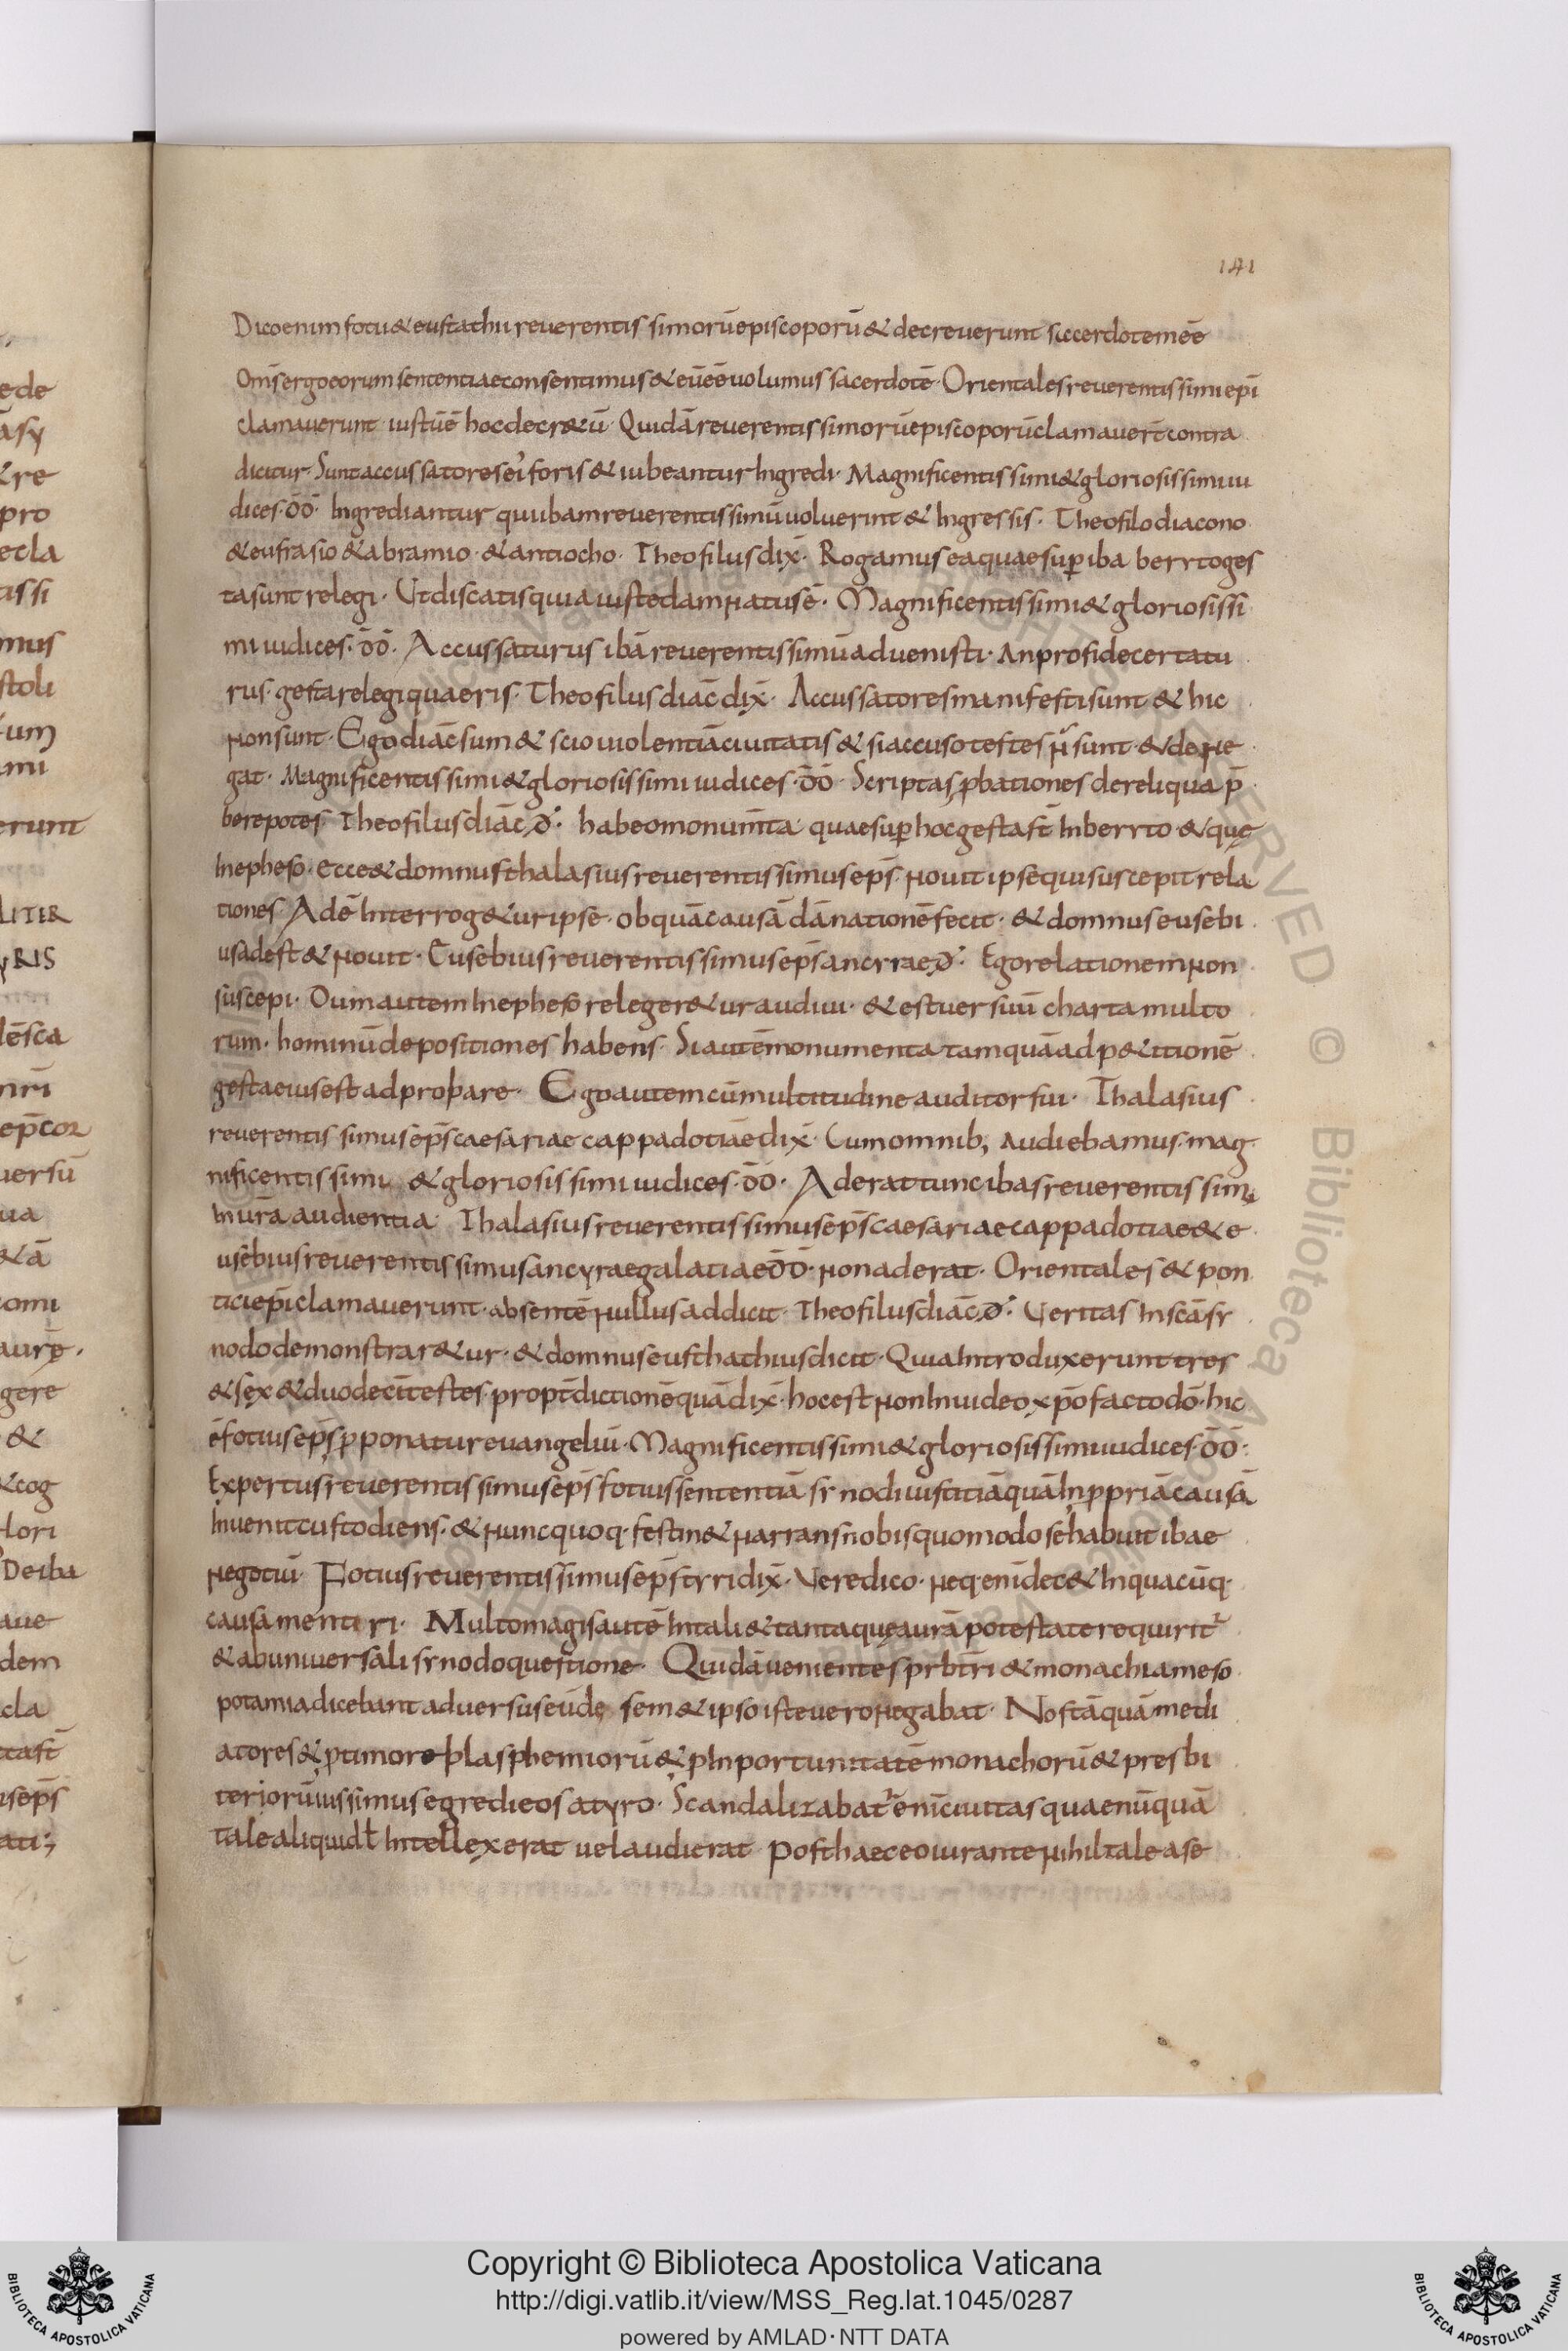 141
Dico enim fotii & eustathii reuerentissimorū episcoporū & decreuerunt sacerdotem eē
Om̄s ergo eorum sententiae consentimus & eū eē uolumus sacerdotē · Orientales reuerentissimi ep̄i
clamauerunt iustū ē hoc decr&ū · Quidā reuerentissimorū episcoporū clamauer̄t contra
dicitur · Sunt accussatores ei foris & iubeantur Ingredi · Magnificentissimi & gloriosissimi iu
dices · d̄d̄ · Ingrediantur qui ibam reuerentissimū uoluerint & Ingressis · Theofilo diacono
& eufrasio & abramio · & antiocho · Theofilus dix̄ · Rogamus ea quae sup̄ iba berrto ges
ta sunt relegi · Ut discatis quia iuste damnatus ē · Magnificentissimi & gloriosissi
mi iudices · d̄d̄ · Accussaturus ibā reuerentissimū aduenisti · An pro fide certatu
rus · gesta relegi quaeris · Theofilus diāc dix̄ · Accussatores manifesti sunt & hic
non sunt · Ego diāc sum & scio uiolentiā ciuitatis & si accuso testes n̄ sunt · & de ne
gat · Magnificentissimi & gloriosissimi iudices · d̄d̄ · Scriptas p̱bationes de reliqua p̄
bere potes · Theofilus diāc d̄ · habeo monum̄ta quae sup̄ hoc gesta st̄ In berrto & quę
In epheso · ecce & domnus thalasius reuerentissimus ep̄s · nouit ipse qui suscepit rela
tiones · Adē Interrog&ur ipse · ob quā causā dānationē fecit · & domnus eusebi
us adest & nouit · Eusebius reuerentissimus ep̄s ancrrae d̄ · Ego relationem non
suscepi · Dum autem In epheso releger&ur audiui · & est uersuū charta multo
rum · hominū depositiones habens · Si autē monumenta tamquā ad p&itionē
gesta eius est adprobare · Ego autem cū multitudine auditor fui · Thalasius
reuerentissimus ep̄s caesariae cappadotiae dix̄ · Cum omnib; audiebamus · mag
nificentissimi & gloriosissimi iudices · d̄d̄ · Aderat tunc ibas reuerentissimi
In ur̄a audientia · Thalasius reuerentissimus ep̄s caesariae cappadotiae & e
usebius reuerentissimus ancyrae galatiae d̄d̄ · non aderat · Orientales & pon
tici ep̄i clamauerunt · absentē nullus addicit · Theofilus diāc d̄ · Ueritas In scā sr
nodo demonstrar&ur · & domnus eusthathius dicit · Quia Introduxerunt tres
& sex & duodeci testes · propt̄ dictionē quā dix̄ · hoc est non Inuideo xp̄o facto dō · hic
ē fotius ep̄s p̱ponatur euangeliū · Magnificentissimi & gloriosissimi iudices · d̄d̄ ·
Expertus reuerentissimus ep̄s fotius sententiā srnodi iustitiā quā In p̱priā causā
Inuenit custodiens · & nunc quoq · festin& narrans nobis quomodo se habuit ibae
negotiū · Fotius reuerentissimus ep̄s trri dix̄ · Vere dico · neq · enī dec& In quacūq ·
causa mentiri · Multo magis autē In tali & tanta quę a ur̄ā potestate requirit̄
& ab uniuersali srnodo questione · Quidā uenientes prb̄tri & monachi a meso
potamia dicebant aduersus eūdē sem& ipso iste uero negabat · Nos tāquā medi
atores & p̱ timore blasphemiorū & p̱ Inportunitatē monachorū & presbi
teriorū iussimus egredi eos a tyro · Scandalizabat̄ enī ciuitas quae nūquā
tale aliquid t̄ Intellexerat uel audierat Post haec eo iurante nihil tale a se
Copyright © Biblioteca Apostolica Vaticana
http://digi.vatlib.it/view/MSS_Reg.lat.1045/0287
powered by AMLAD·NTT DATA